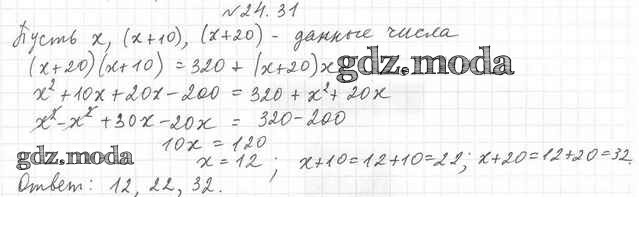 №24.31
Пусть x, (x+10), (x+20) - данные числа
(x+20)(x+10) = 320 + (x+20)x gdz.moda
x²+10x+20x-200 = 320+x²+20x
x²-x²+30x-20x = 320-200
10x = 120
gdz.moda x=12; x+10=12+10=22; x+20=12+20=32.
Ответ: 12, 22, 32.